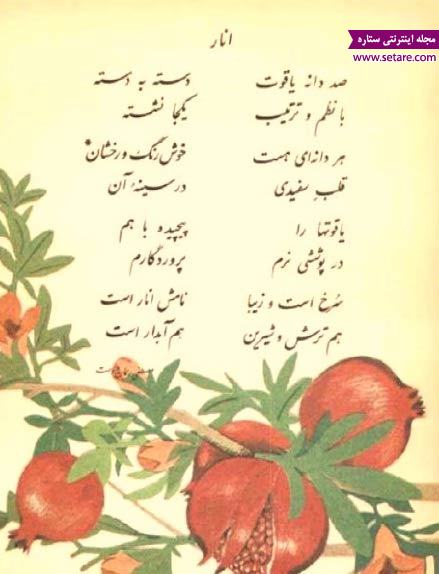 مجله اینترنتی ستاره
www.setare.com
انار
صد دانه یاقوت دسته به دسته
با نظم و ترتیب یکجا نشسته
هر دانه‌ای هست خوش رنگ و رخشان*
قلب سفیدی در سینهٔ آن
یاقوتها را پیچیده با هم
در پوششی نرم پروردگارم
سرخ است و زیبا نامش انار است
هم ترش و شیرین هم آبدار است